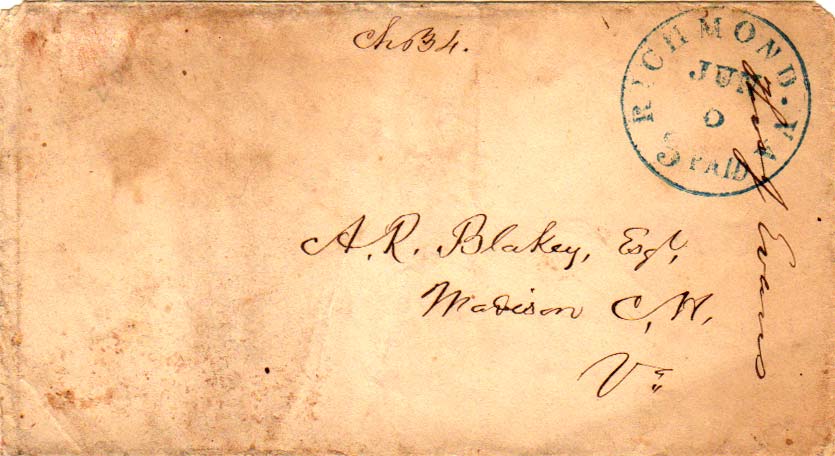 Ch B 4.
RICHMOND. VA
JUN
3 PAID
A. R. Blakey, Esqr,
Madison C. H.
Va
Evans